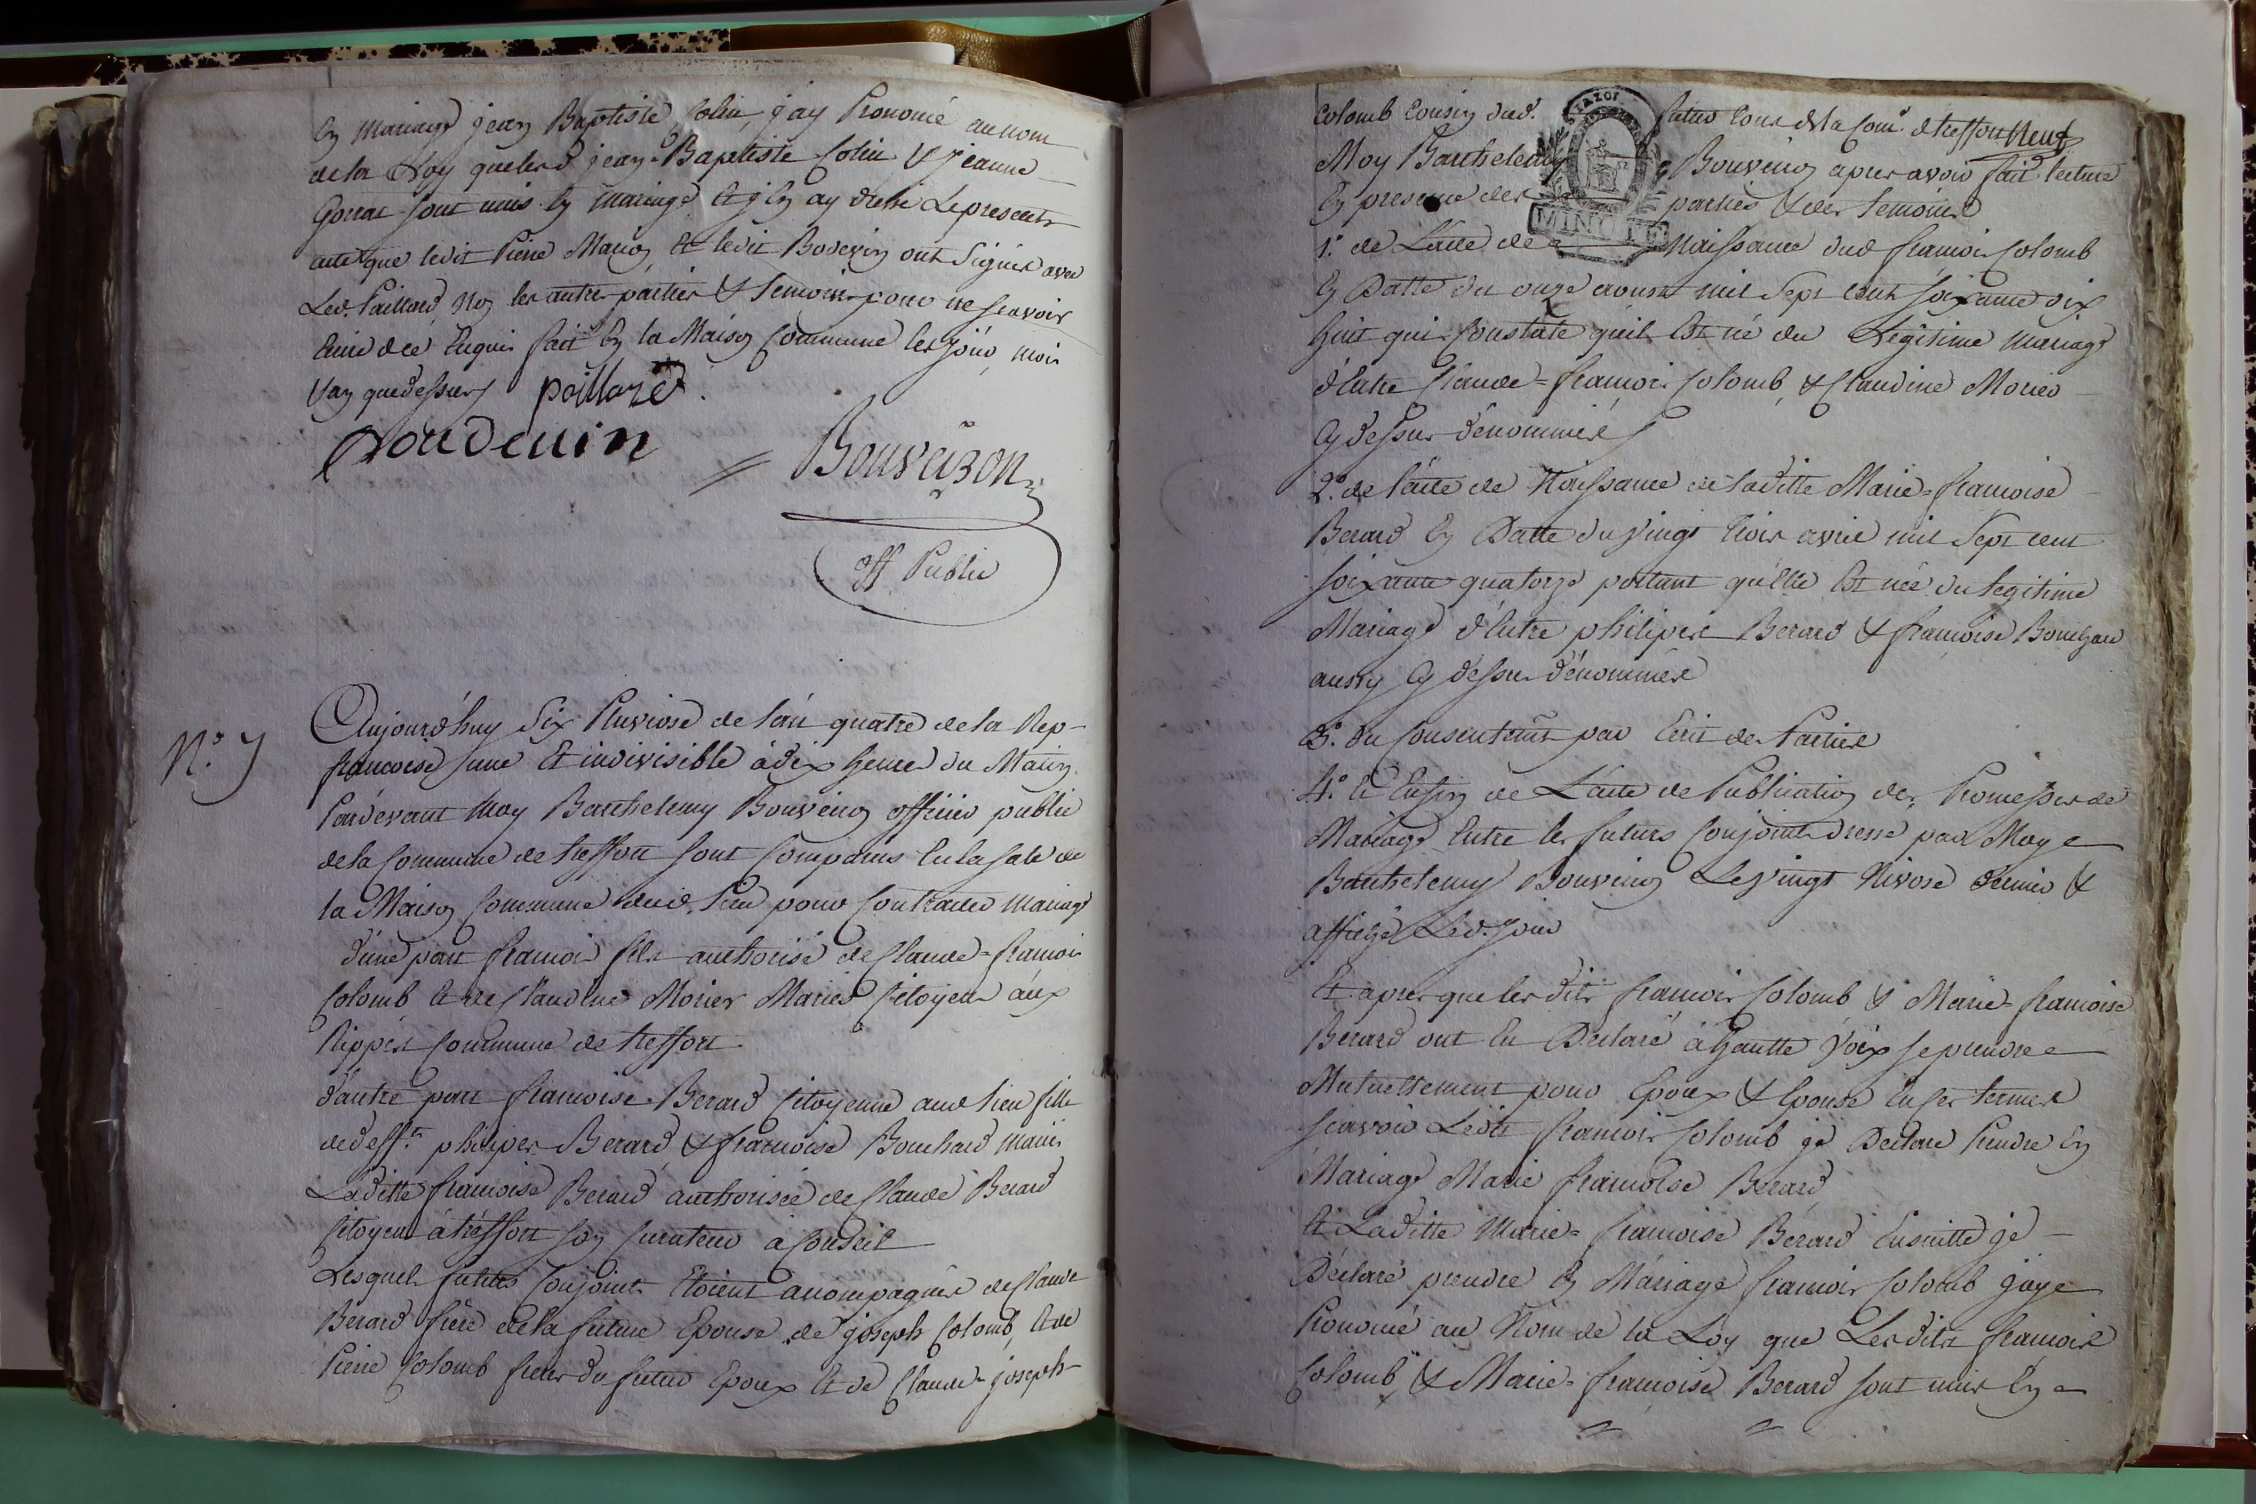 En mariage jean Baptiste Colin, j'ay Prononcé au nom
de la Loy que lesd. jean-Baptiste Colin & jeanne
Gorrat sont unis En mariage Et j'En ay dressé Le present
acte que ledit Pierre Marion Et ledit Bodevin ont Signés avec
Led. Paillard, Non les autres parties & temoins pour ne scavoir
Ecrire de ce Enquis fait En la Maison Commune les jour, mois
& an que dessus paillard.
Boudevin Bouveiron
off Public
N.° 7
Aujourd'huy Six Pluviose de l'an quatre de la Rep-
francoise une Et indivisible à dix heures du Matin
Pardevant Moy Barthelemy Bouveiron officier public
de la Commune de treffort sont Comparus En la Sale de
la Maison Commune dud. Lieu pour Contracter mariage
d'une part francois fils authorisé de Claude-francois
Colomb, Et de Claudine Morier Mariés Citoyens aux
Rippes Commune de treffort
d'autre part francoise Berard Citoyenne aud. lieu fille
de deff.ts philipes Berard & francoise Bouchard mariés
Laditte francoise Berard authorisée de Claude Berard
Citoyen à treffort son Curateur à Conseil
Lesquels futurs Conjoints Etoient accompagnés de Claude
Berard frère de la future Epouse de joseph Colomb, Et de
Pierre Colomb freres du futur Epoux Et de Claude-joseph
Colomb Cousin dud. futur tous de la Com.e de treffort Neuf
Moy Barthelemy Bouveiron apres avoir fait lecture
En presence des parties & des temoins
1.° de L'acte de Naissance dud francois Colomb
En Datte du onze aoust mil Sept cent soixante dix
huit qui Constate qu'il Est né du Légitime Mariage
d'Entre Claude-francois Colomb, & Claudine Morier
Cy dessus dénommés
2.° de l'acte de Naissance de laditte Marie-francoise
Berard En Datte du Vingt trois avril mil Sept cent
soixante quatorze portant qu'Elle Est née du legitime
Mariage d'Entre philipes Berard & francoise Bouchard
aussy Cy dessus dénommés
3.° du Consentem.t par Ecrit des Parties
4.° Et Enfin de L'acte de Publication des Promesses de
Mariage Entre les futurs Conjoints dressé par Moy
Barthelemy Bouveiron Le Vingt Nivose dernier &
affiché Led. Jour
Et apres que les dits francois Colomb & Marie-francoise
Berard ont Eu Declaré à hautte Voix se prendre
Mutuellement pour Epoux & Epouse En ces termes
scavoir Ledit francois Colomb je Declare Prendre En
Mariage Marie francoise Berard
Et Laditte Marie-francoise Berard Ensuitte je
Déclare prendre En Mariage francois Colomb j'ay
Prononcé au Nom de la Loy que Lesdits francois
Colomb, & Marie-francoise Berard sont unis En